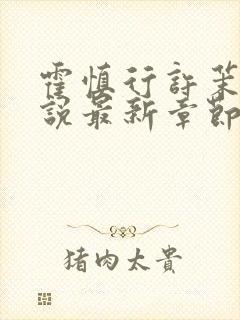 霍慎行許茱
說最新章節
猪肉太貴